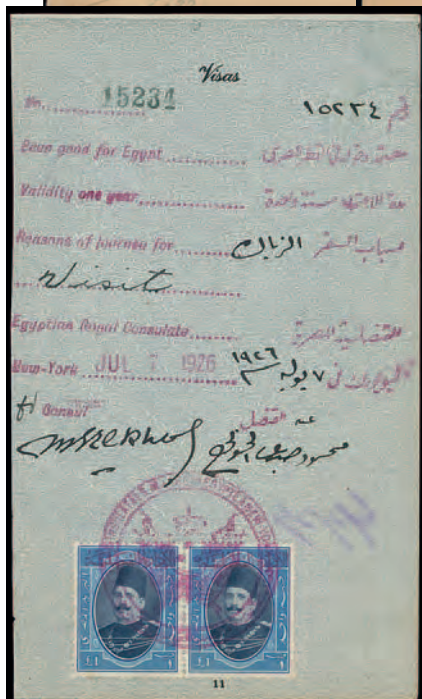 Visas
No. 15234 رقم ١٥٢٣٤
Been good for Egypt
Validity one year مدة الاعتماد سنة واحدة
Reasons of journey for أسباب السفر الزيارة
Visit
Egyptian Royal Consulate القنصلية المصرية
New-York JUL 7 1926 نيويورك في ٧ يوليه سنة ١٩٢٦
Consul عن القنصل
£1 £1
11